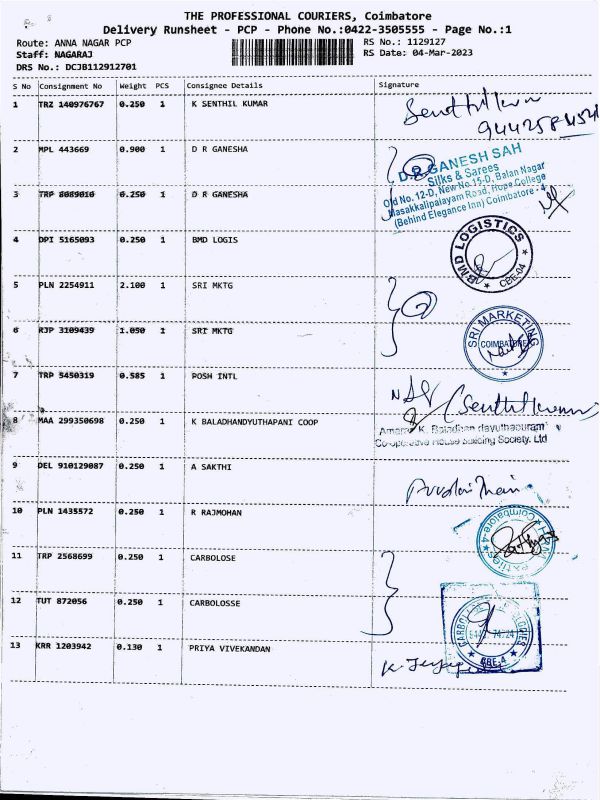 THE PROFESSIONAL COURIERS, Coimbatore
Delivery Runsheet - PCP - Phone No.:0422-3505555 - Page No.:1
Route: ANNA NAGAR PCP RS No.: 1129127
Staff: NAGARAJ RS Date: 04-Mar-2023
DRS No.: DCJB112912701
S No Consignment No Weight PCS Consignee Details Signature
1 TRZ 140976767 0.250 1 K SENTHIL KUMAR
2 MPL 443669 0.900 1 D R GANESHA
D R GANESH SAH
Silks & Sarees
Old No. 12-D, New No.15-D, Balan Nagar
Masakkalipalayam Road, Hope College
(Behind Elegance Inn) Coimbatore - 4
3 TRP 8089010 0.250 1 D R GANESHA
4 DPI 5165093 0.250 1 BMD LOGIS
BMD LOGISTICS
CBE-04
5 PLN 2254911 2.100 1 SRI MKTG
2
6 RJP 3109439 1.050 1 SRI MKTG
SRI MARKETING
COIMBATORE
7 TRP 5450319 0.585 1 POSH INTL
8 MAA 299350698 0.250 1 K BALADHANDYUTHAPANI COOP
Co-operative House Building Society. Ltd
9 DEL 910129087 0.250 1 A SAKTHI
10 PLN 1435572 0.250 1 R RAJMOHAN
Coimbatore-4
11 TRP 2568699 0.250 1 CARBOLOSE
12 TUT 872056 0.250 1 CARBOLOSSE
CBE-4
13 KRR 1203942 0.130 1 PRIYA VIVEKANDAN